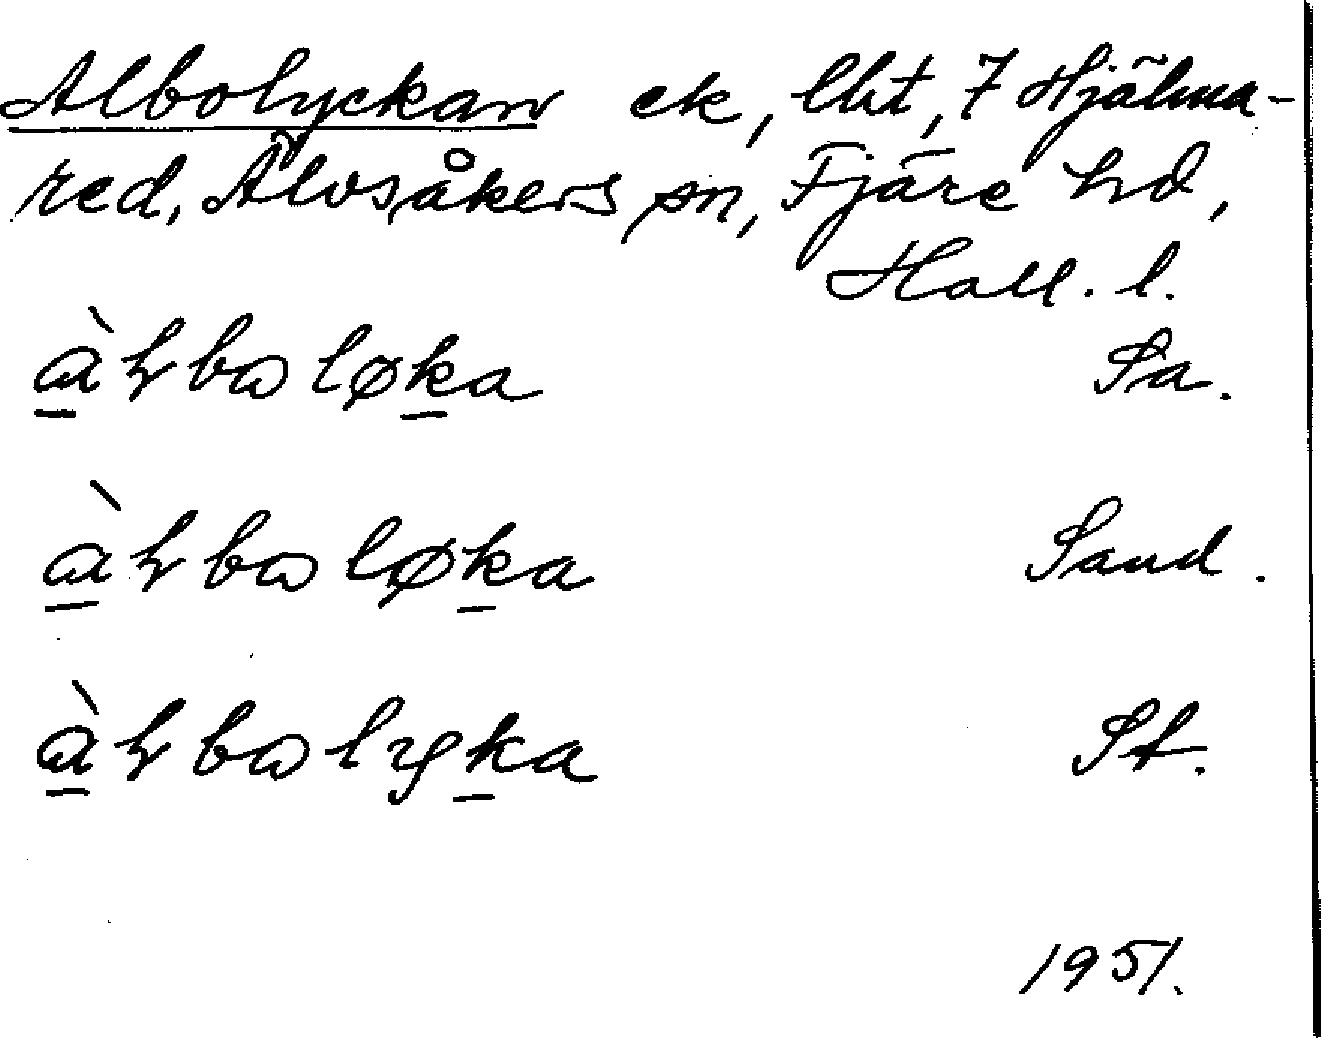 Albolyckan ek, lht, 7 Hjälma-
red, Älvsåkers sn, Fjäre hd,
Hall. l.
àƚbωløka Sa.
àƚbωløka Sand.
àƚbωlyka St.
1951.